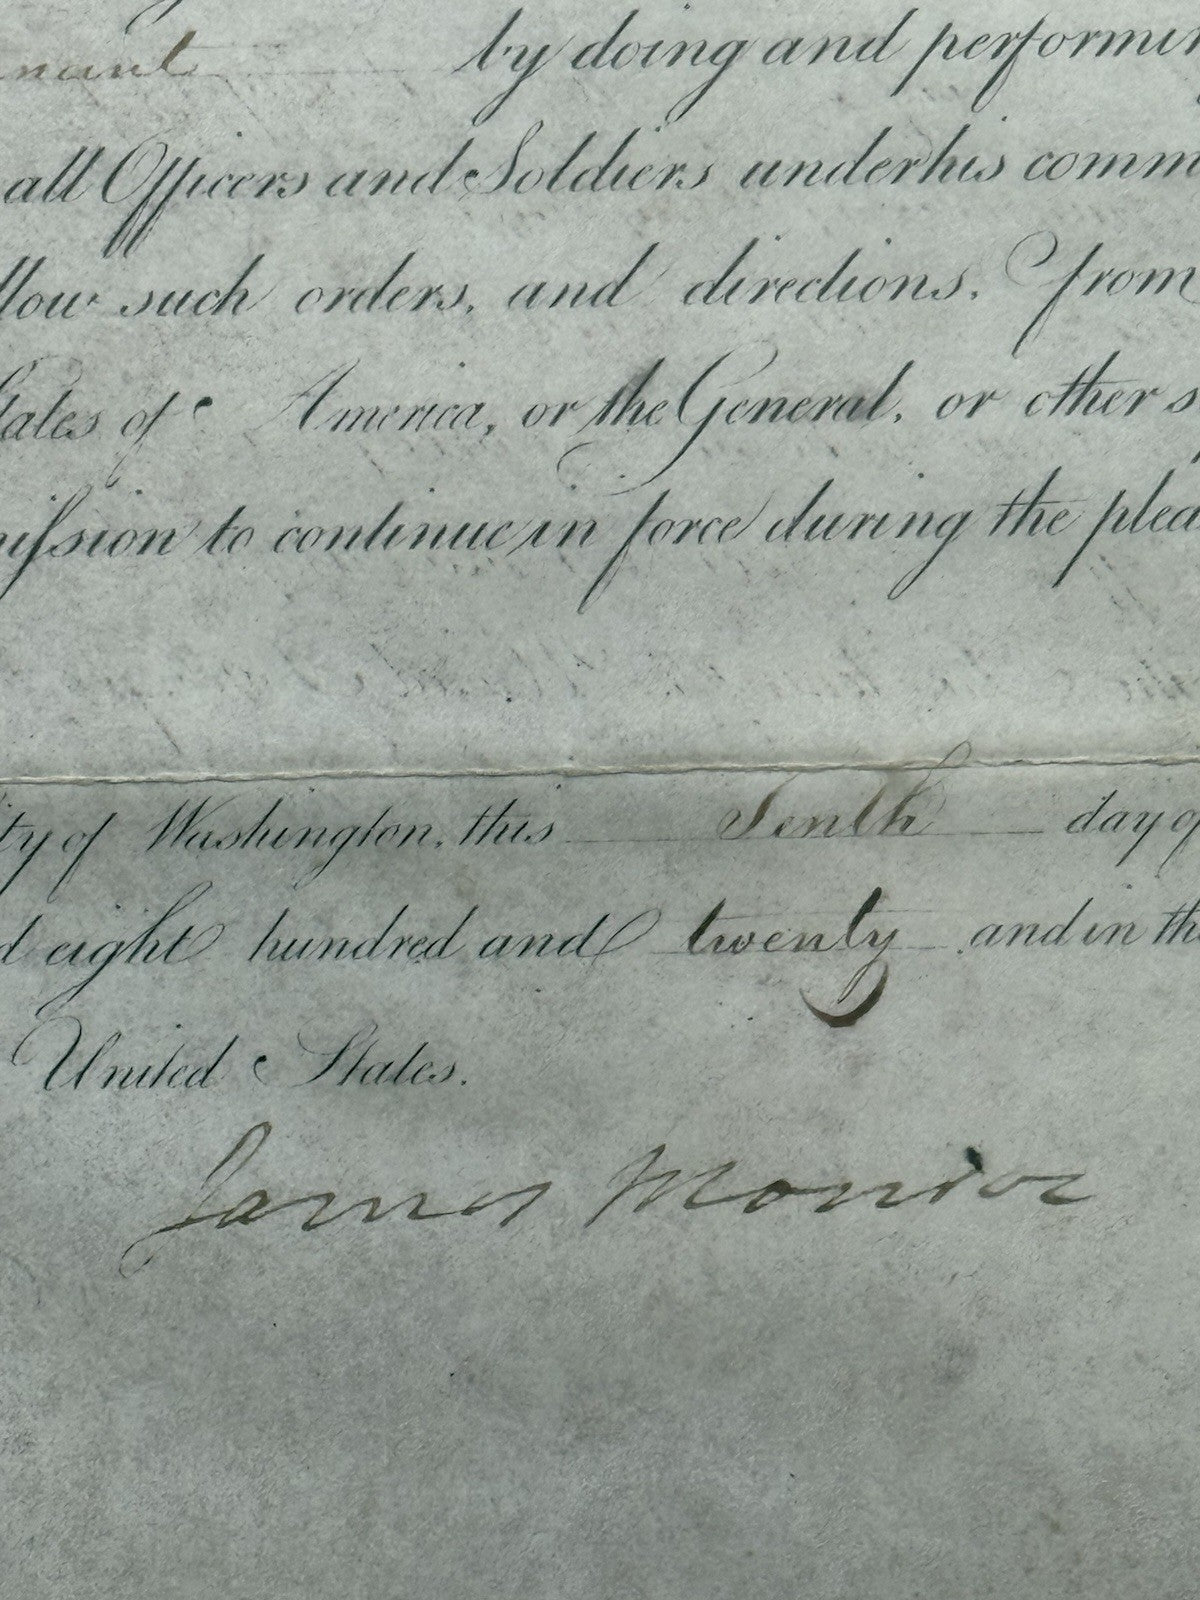 nant by doing and performin
all Officers and Soldiers under his comm
llow such orders, and directions, from
tates of America, or the General, or other s
ission to continue in force during the plea
ty of Washington, this Tenth day of
d eight hundred and twenty and in th
United States.
James Monroe